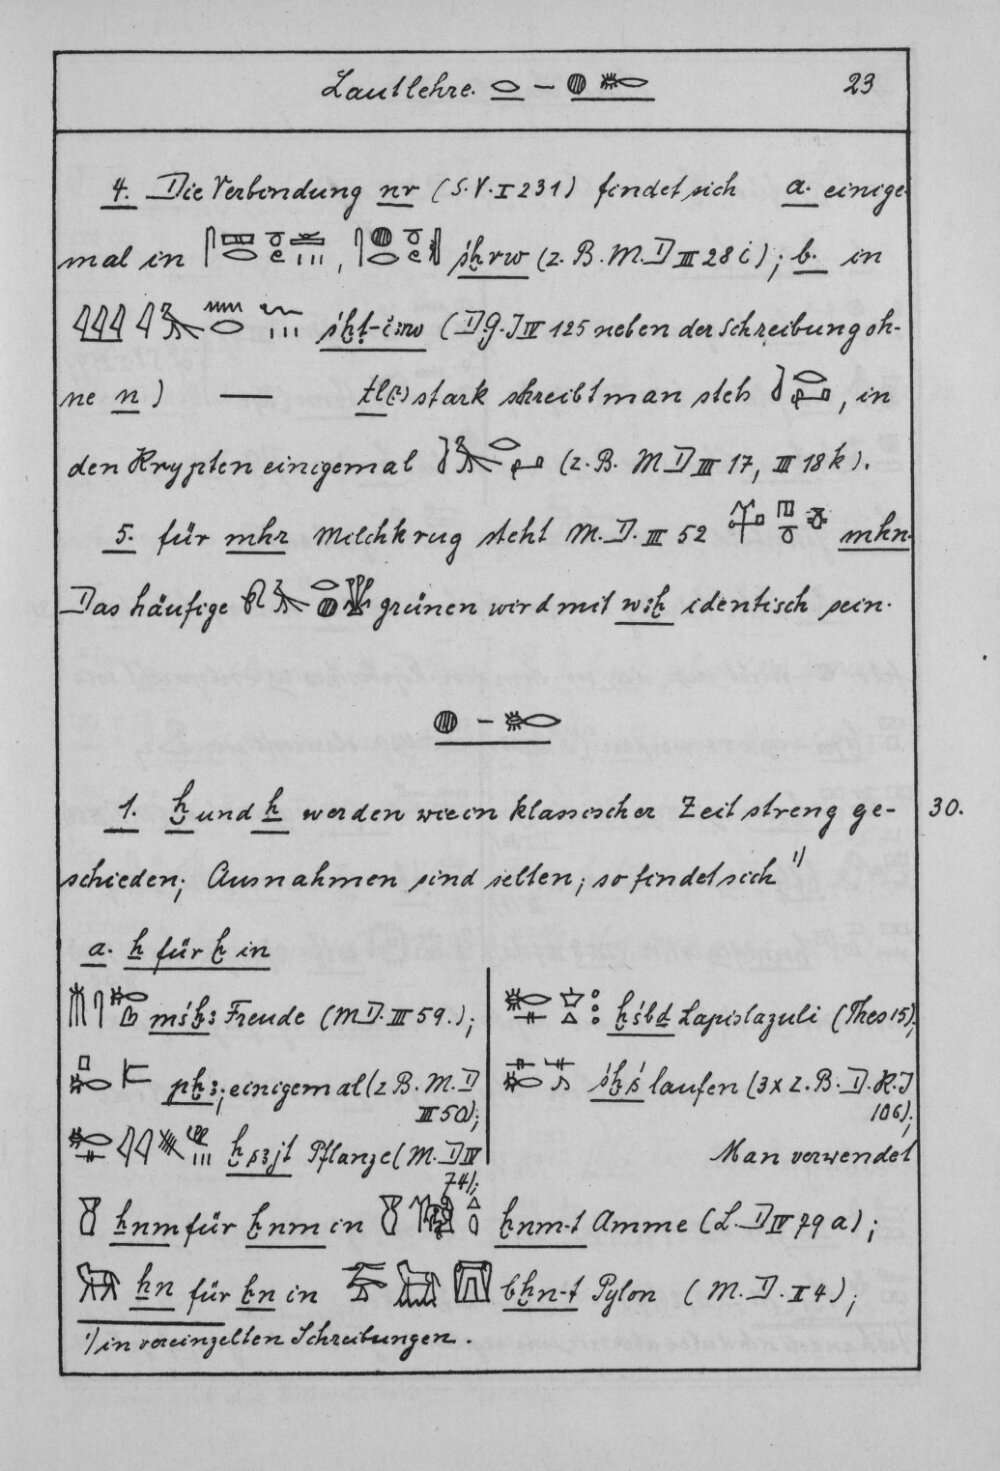 Lautlehre. 𓂋 – 𓐍 𓄡 23
4. Die Verbindung nr (S. V. I 231) findet sich a. einige-
mal in , śḫrw (z. B. M. D III 28 i); b. in
śḫt-i:rw (D G. I IV 125 neben der Schreibung oh-
ne n) — tl(?) stark schreibt man stets , in
den Krypten einigemal (z. B. M D III 17, III 18 k).
5. für mhr Milchkrug steht M. D. III 52 mhn.
Das häufige grünen wird mit wꜣḫ identisch sein.
𓐍 – 𓄡
1. ḫ und ẖ werden wie in klassischer Zeit streng ge- 30.
schieden; Ausnahmen sind selten; so findet sich ¹)
a. ẖ für ḫ in
mśḫꜣ Freude (M D. III 59.);
pḫꜣ; einigemal (z B. M. D
III 50);
ḫsꜣjt Pflanze (M. D IV
74);
ḫśbd Lapislazuli (Thes 15);
śḫś laufen (3 x z. B. D. R. I
106);
Man verwendet
ẖnm für ḫnm in ḫnm-t Amme (L. D IV 79 a);
ẖn für ḫn in bḫn-t Pylon (M. D. I 4);
¹) in vereinzelten Schreibungen.